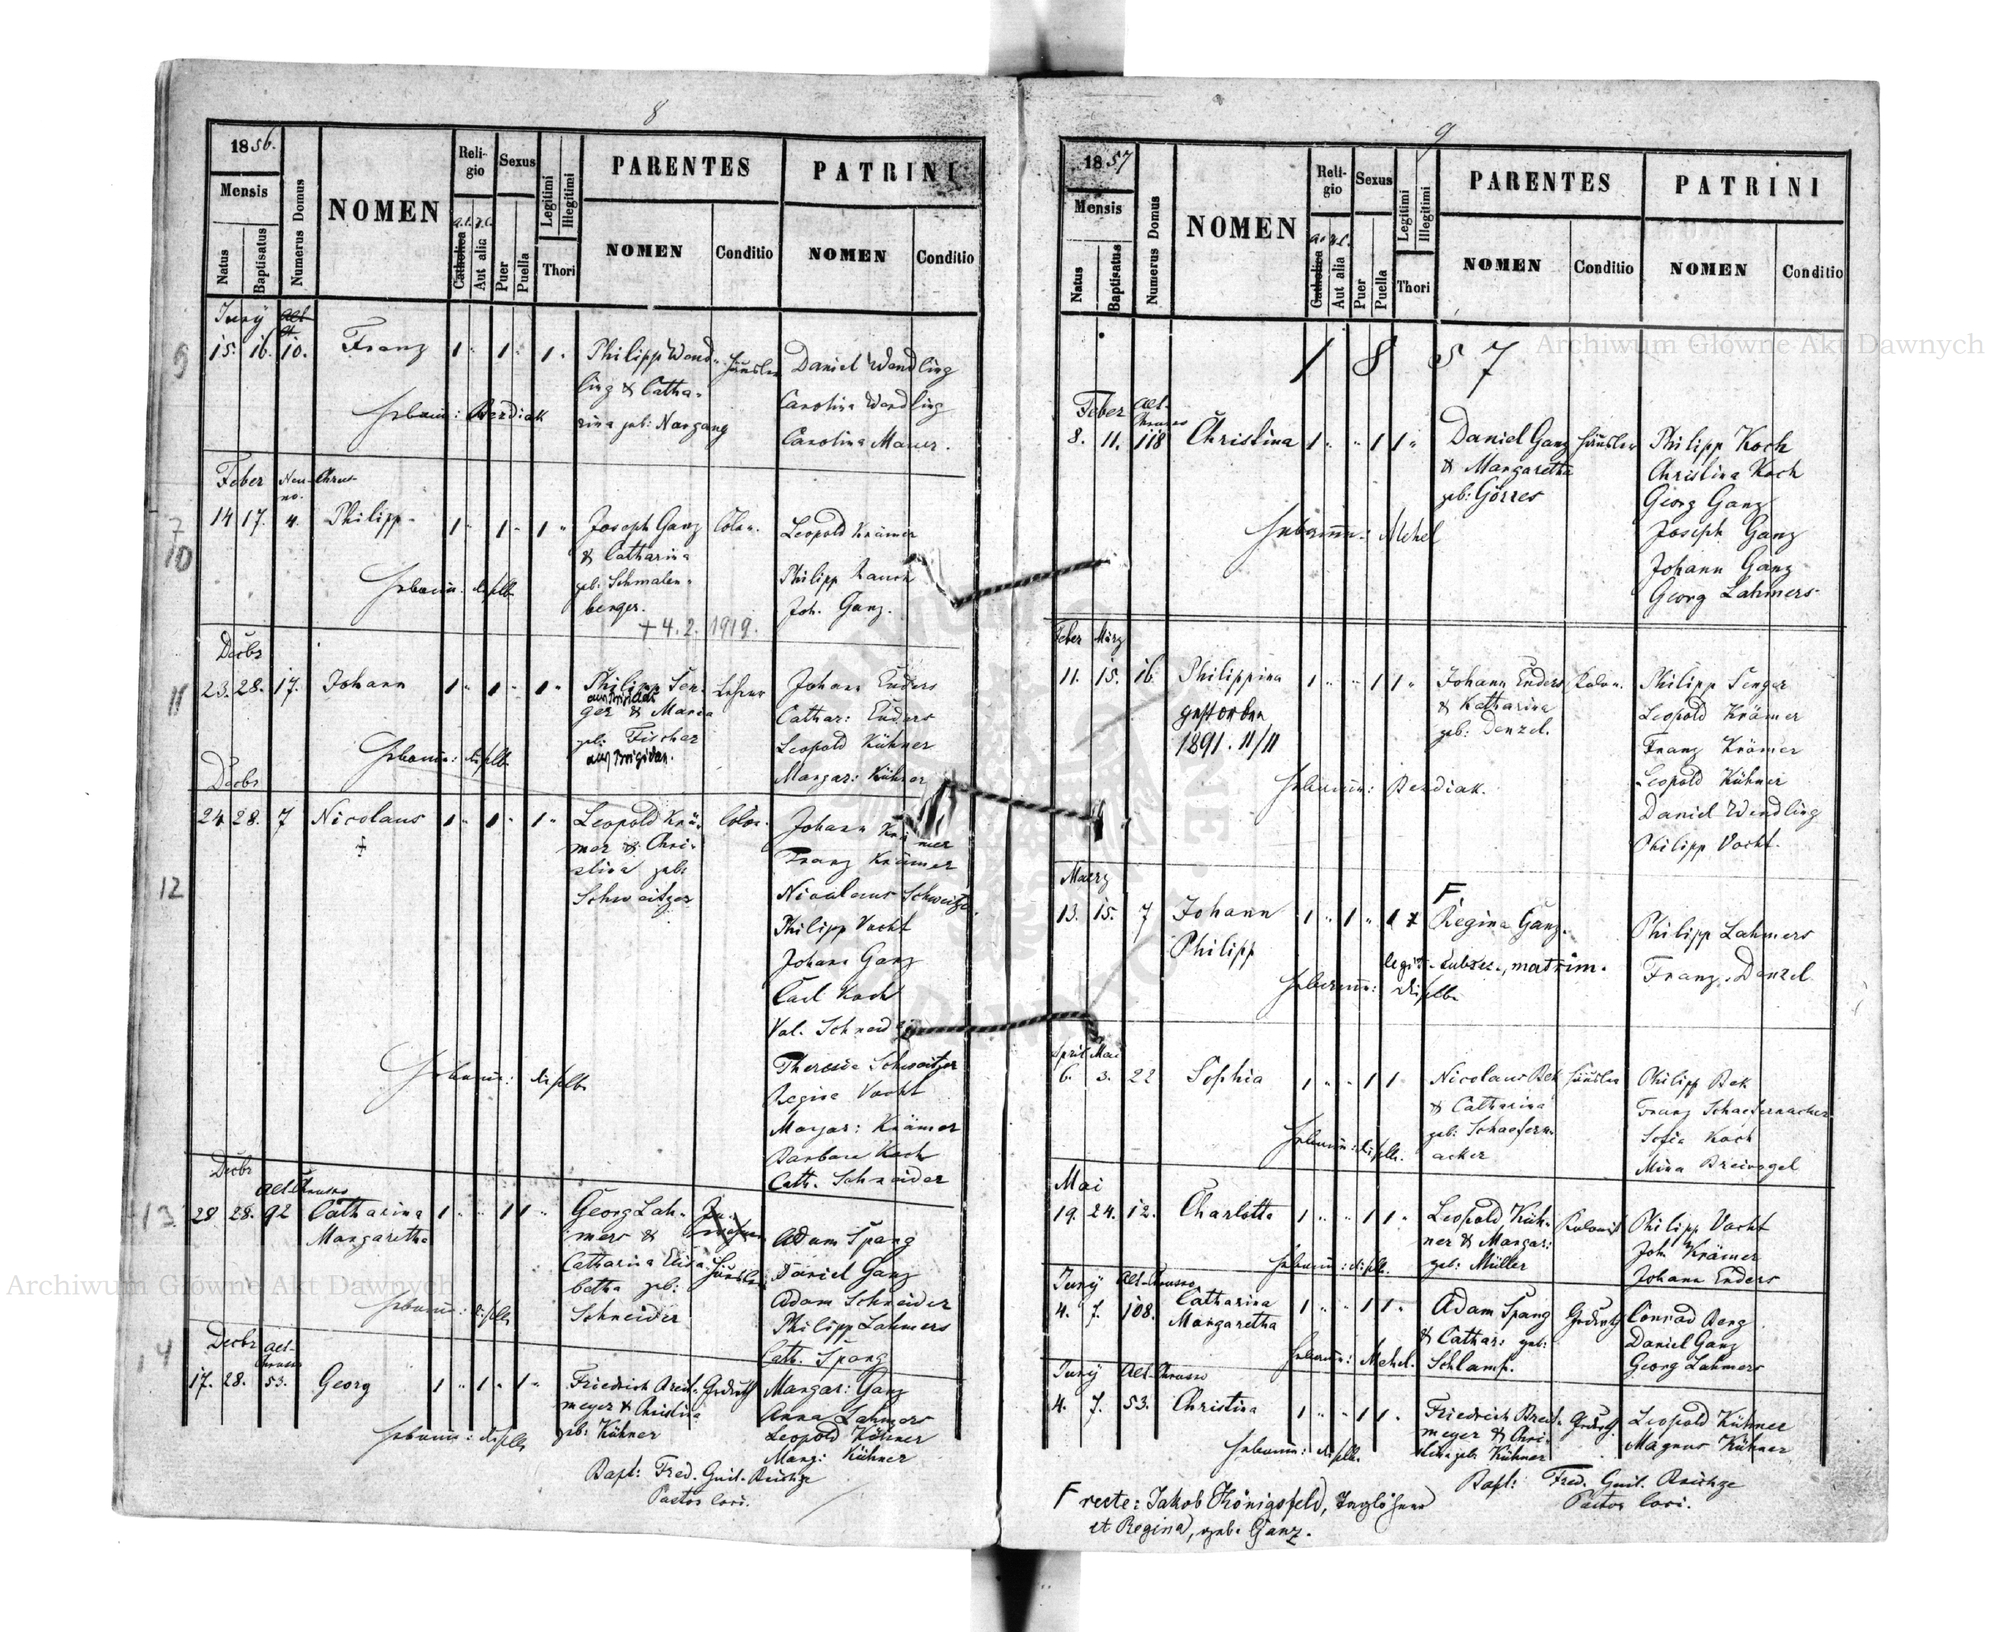 8
1856.
Mensis
Natus
Baptisatus
Numerus Domus
NOMEN
Religio
Catholica
Aut alia
Sexus
Puer
Puella
Legitimi
Illegitimi
Thori
PARENTES
NOMEN
Conditio
PATRINI
NOMEN
Conditio
9
Juny
15. 16. 10. Franz 1 " 1 " 1 " Philipp Wend- Häusler Daniel Wendling
ling & Catha- Carolina Wendling
rina geb: Nargang Carolina Mauer.
Berdiak
10
Feber Neu-Chrus-
no.
14 17. 4. Philipp 1 " 1 " 1 " Joseph Ganz Colon. Leopold Krämer
& Catharina
geb: Schmalen- Philipp Lauch
berger. Joh. Ganz.
+ 4. 2. 1919.
11
Decbr
23. 28. 17. Johann 1 " 1 " 1 " Philipp Sen- Lehrer Johann Enders
ger & Maria Cathar: Enders
geb: Fischer Leopold Kühner
Margar: Kühner
12
Decbr
24 28. 7 Nicolaus 1 " 1 " 1 " Leopold Krä- Colon. Johann Krämer
mer & Chri- Franz Krämer
stina geb: Nicolaus Schweitzer
Schweitzer
Philipp Vocht
Johann Ganz
Carl Koch
Val. Schneider
Theresia Schweitzer
Regina Vocht
Margar: Krämer
Barbara Koch
Cath. Schneider
13
Decbr
Alt-Chrusno
28 28. 92 Catharina 1 " " 1 1 " Georg Lah-
Margaretha mers & Adam Spang
Catharina Elisa- Häusler Daniel Ganz
betha geb: Adam Schneider
Schneider Philipp Lahmers
Cath. Spang
14
Decbr Alt-
Chrusno
17. 28. 53. Georg 1 " 1 " 1 " Friedrich Breit- Margar: Ganz
meyer & Christina Anna Lahmers
geb: Kühner Leopold Köhner
Marg: Kühner
Bapt: Fred. Guil. Reichze
Pastor loci.
9
1857
Mensis
Natus
Baptisatus
Numerus Domus
NOMEN
Religio
Catholica
Aut alia
Sexus
Puer
Puella
Legitimi
Illegitimi
Thori
PARENTES
NOMEN
Conditio
PATRINI
NOMEN
Conditio
1 8 5 7
Feber Alt-
Chrusno
8. 11. 118 Christina 1 " " 1 1 " Daniel Ganz Häusler Philipp Koch
& Margaretha Christina Koch
geb: Görres Georg Ganz
Mehel Joseph Ganz
Johann Ganz
Georg Lahmers
Feber März
11. 15. 16. Philippina 1 " " 1 1 " Johann Enders Kolon. Philipp Senger
gestorben & Katharina Leopold Krämer
1891. 11/11 geb: Denzel. Franz Krämer
Berdiak. Leopold Kühner
Daniel Wendling
Philipp Vocht.
Maerz
F
13. 15. 7 Johann 1 " 1 " 1 Regina Ganz. Philipp Lahmers
Philipp legit. subseq., matrim. Franz Denzel
April Mai
6. 3. 22 Sophia 1 " " 1 1 Nicolaus Bek Häusler Philipp Bek
& Catharina Franz Schaefernacker
geb: Schaefern- Sofia Koch
acker Mina Breivogel
Mai
19. 24. 12. Charlotta 1 " " 1 1 " Leopold Küh- Kolonist Philipp Vocht
ner & Margar: Joh. Krämer
geb: Müller Johann Enders
Juny Alt-Chrusno
4. 7. 108. Catharina 1 " " 1 1 " Adam Spang Conrad Berg
Margaretha & Cathar: geb: Daniel Ganz
Mehel. Schlamp. Georg Lahmers
Juny Alt-Chrusno
4. 7. 53. Christina 1 " " 1 1 " Friedrich Breit- Leopold Kühner
meyer & Chri- Magnus Kühner
stina geb. Kühner
Bapt: Fred. Guil. Reichze
Pastor loci.
F recte: Jakob Königsfeld,
et Regina, geb. Ganz.
Archiwum Główne Akt Dawnych
Archiwum Główne Akt Dawnych